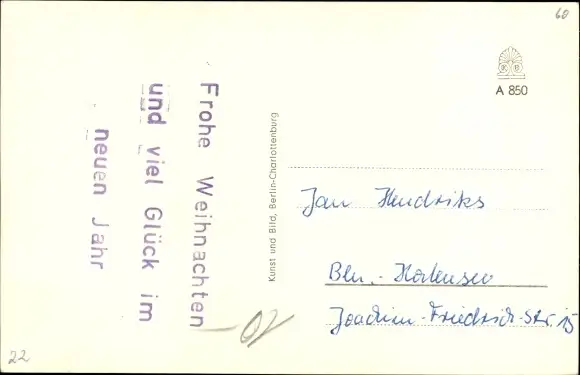 60
A 850
Frohe Weihnachten
und viel Glück im
neuen Jahr
Kunst und Bild, Berlin-Charlottenburg
Jan Hendriks
Bln.-Halensee
Joachim-Friedrich-Str. 15
22